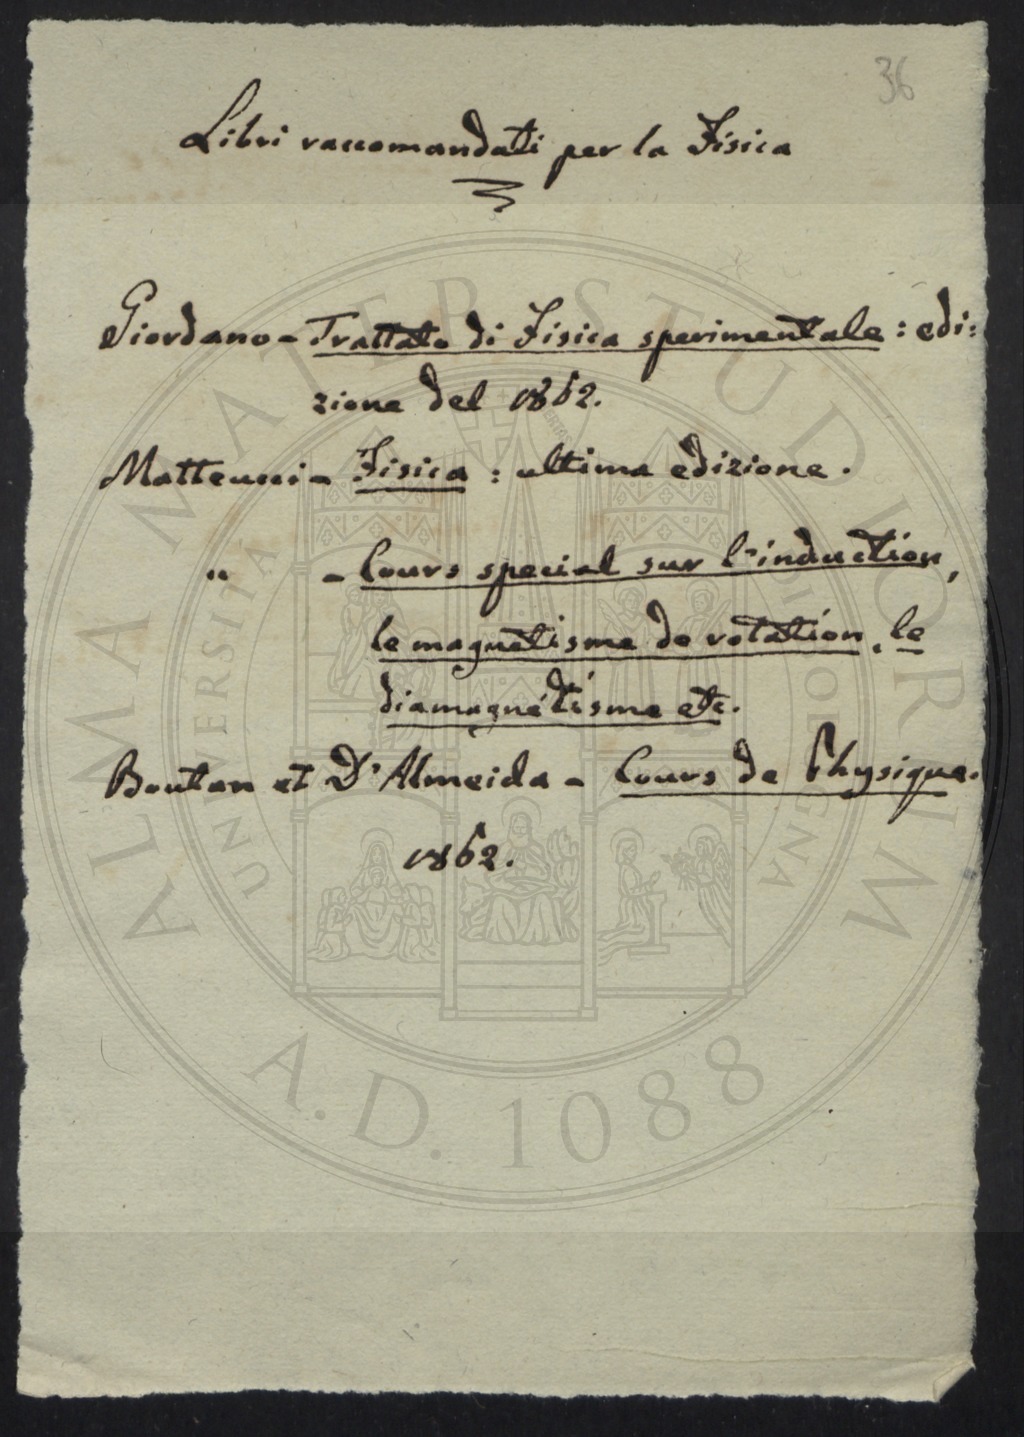 36
Libri raccomandati per la Fisica
Giordano - Trattato di Fisica sperimentale : edi:
zione del 1862.
Matteucci - Fisica : ultima edizione.
" - Cours special sur l'induction,
le magnétisme de rotation, le
diamagnétisme etc.
Boutan et D'Almeida - Cours de Physique.
1862.
ALMA MATER STUDIORUM
UNIVERSITÀ DI BOLOGNA
A.D. 1088